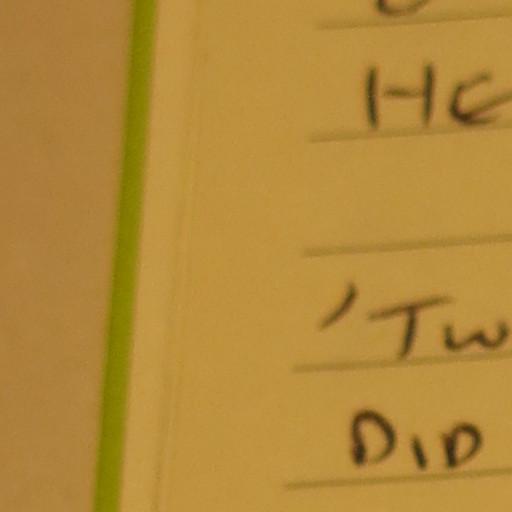 He
'Tw
DID